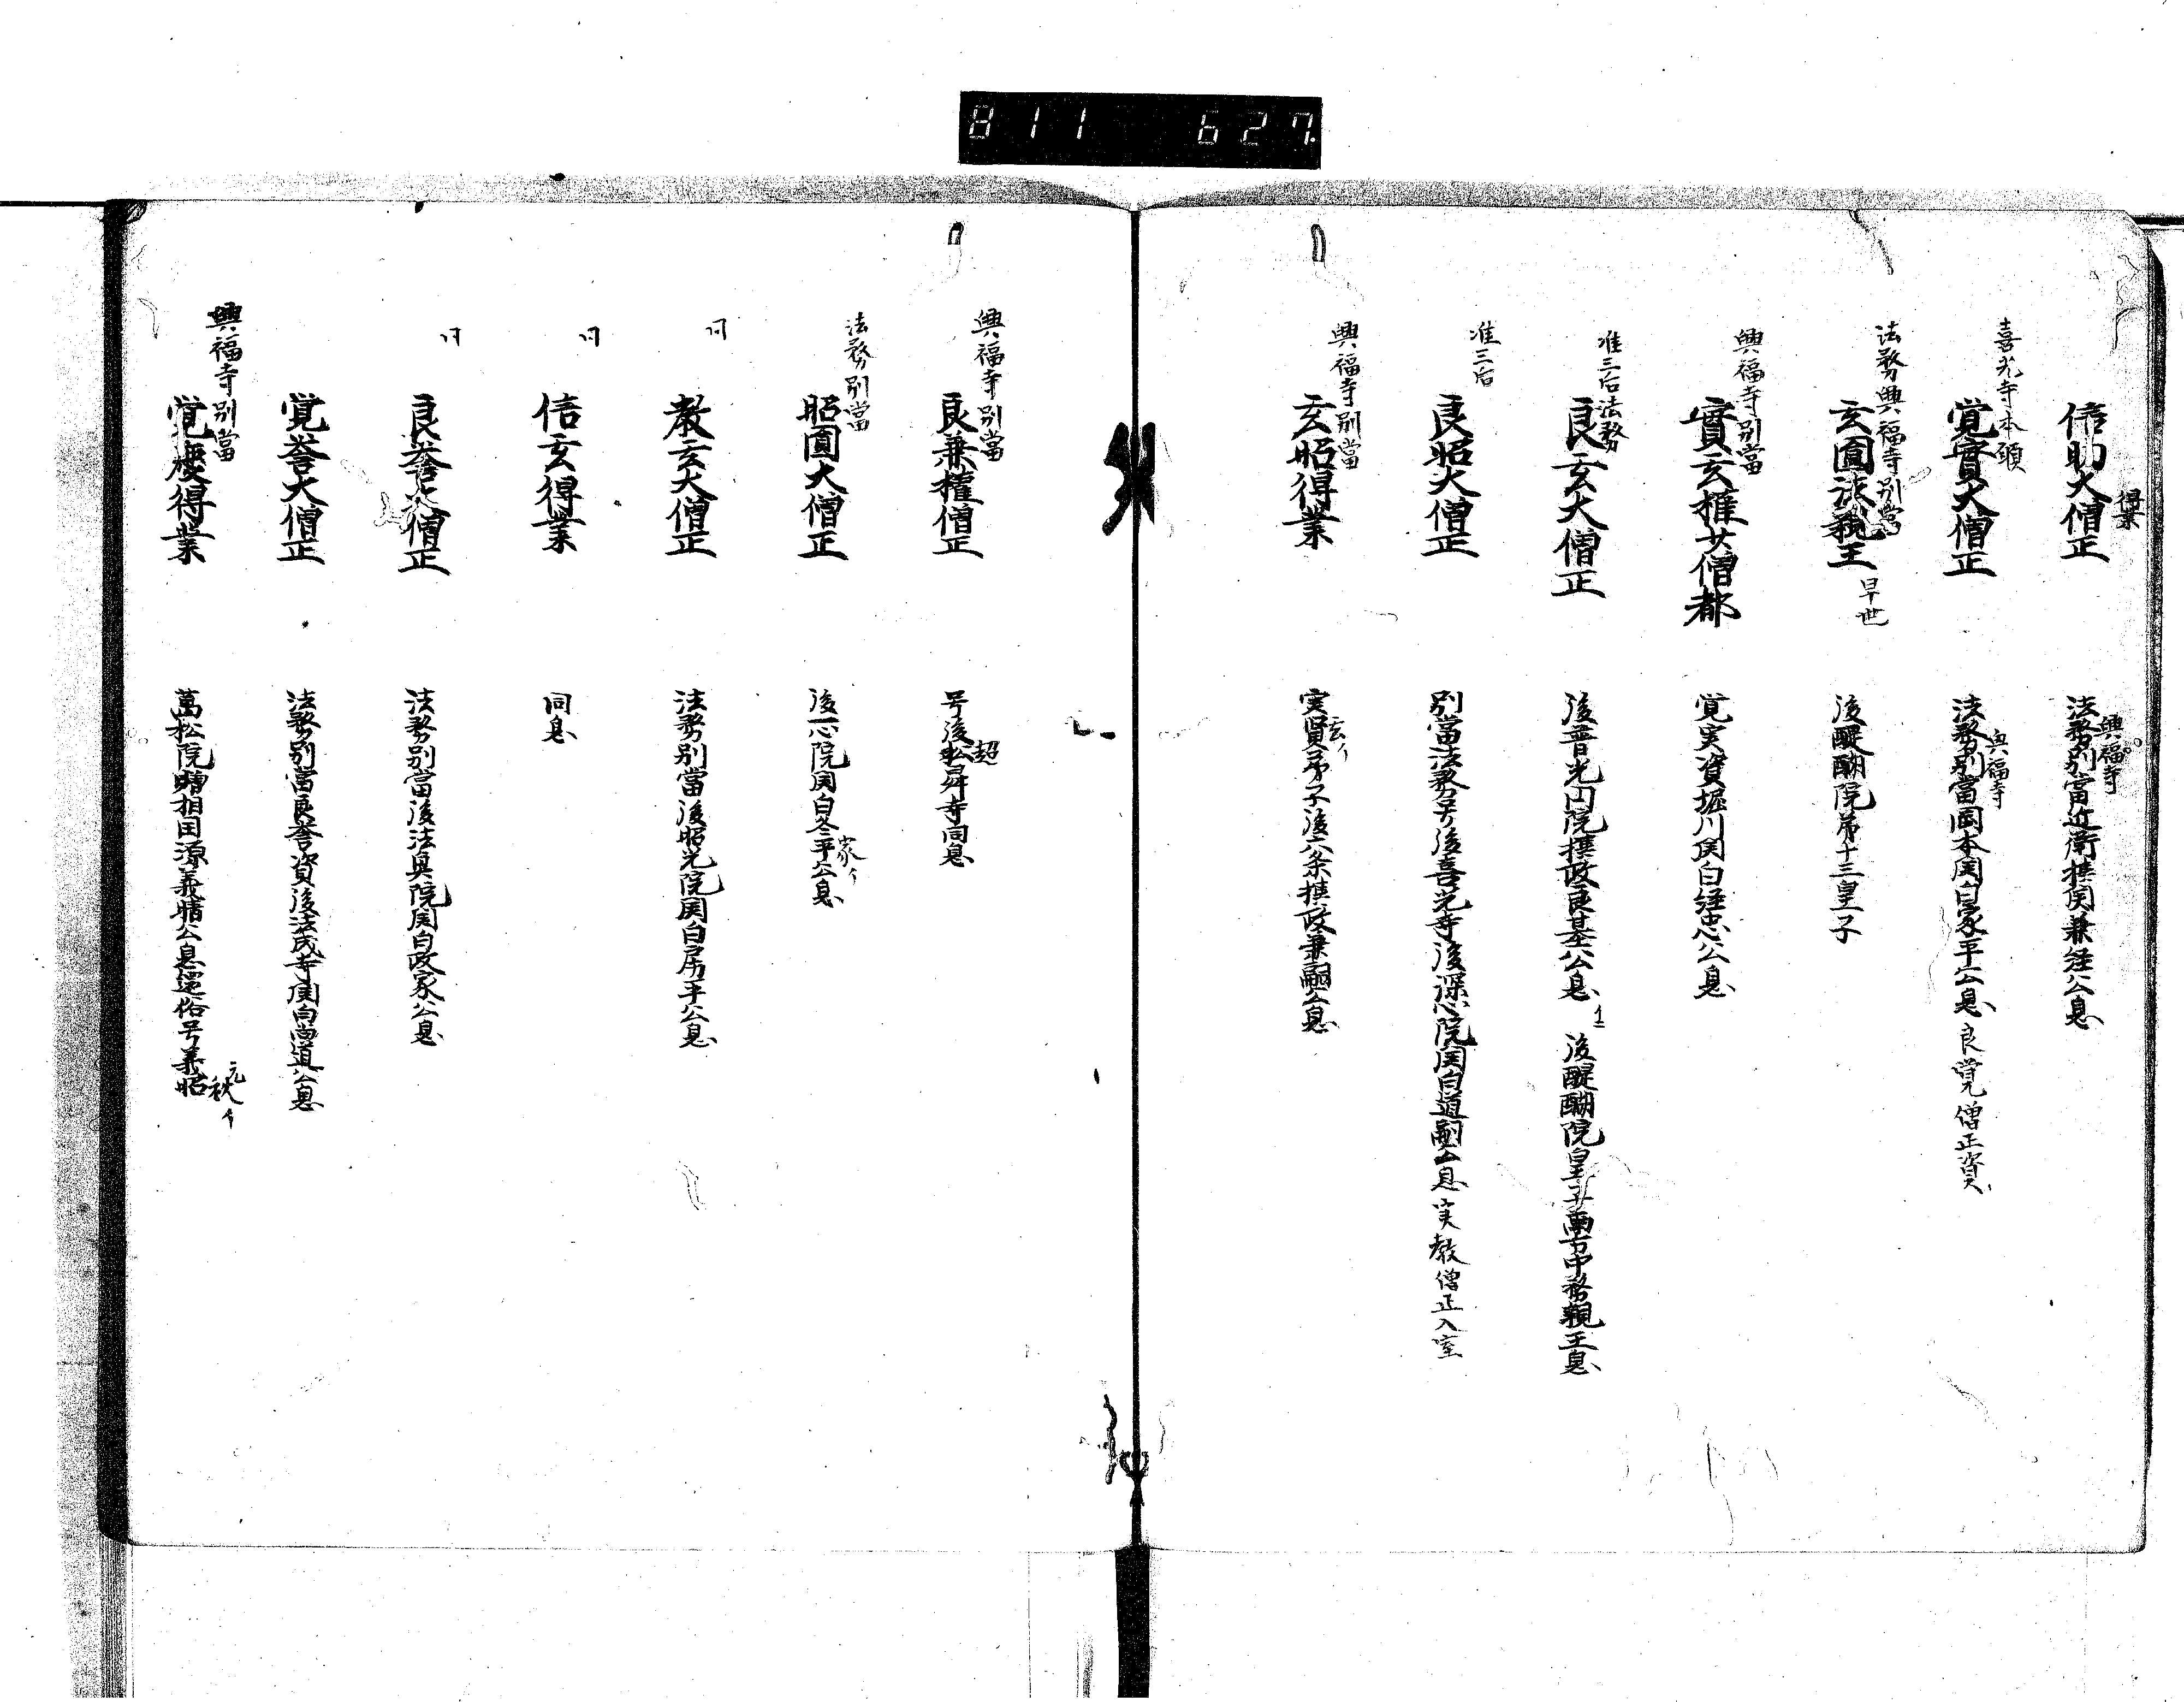 811 627
得業
信助大僧正
興福寺
法務別當近衛摂関兼経公息
喜光寺本願
覚實大僧正
興福寺
法務別當岡本関白家平公息 良覚僧正資
法務興福寺別當
玄圓法親王 早世
後醍醐院第十三皇子
興福寺別當
實玄権少僧都
覚実資堀川関白経忠公息
准三后法務
良玄大僧正
後普光円院摂政良基公息 後醍醐院皇子 中務親王息
准三后
良昭大僧正
別當法務号後喜光寺後深心院関白道嗣公息 実教僧正入室
興福寺別當
玄昭得業
玄イ
実賢弟子後六条摂政兼嗣公息
興福寺別當
良兼権僧正
超
号後松昇寺同息
法務別當
昭圓大僧正
家イ
後一心院関白冬平公息
同
教玄大僧正
法務別當後昭光院関白房平公息
同
信玄得業
同息
同
良誉大僧正
法務別當後法興院関白政家公息
覚誉大僧正
法務別當良誉資後法成寺関白尚道公息
興福寺別當
覚慶得業
萬松院贈相国源義晴公息還俗号義昭
元
秋イ